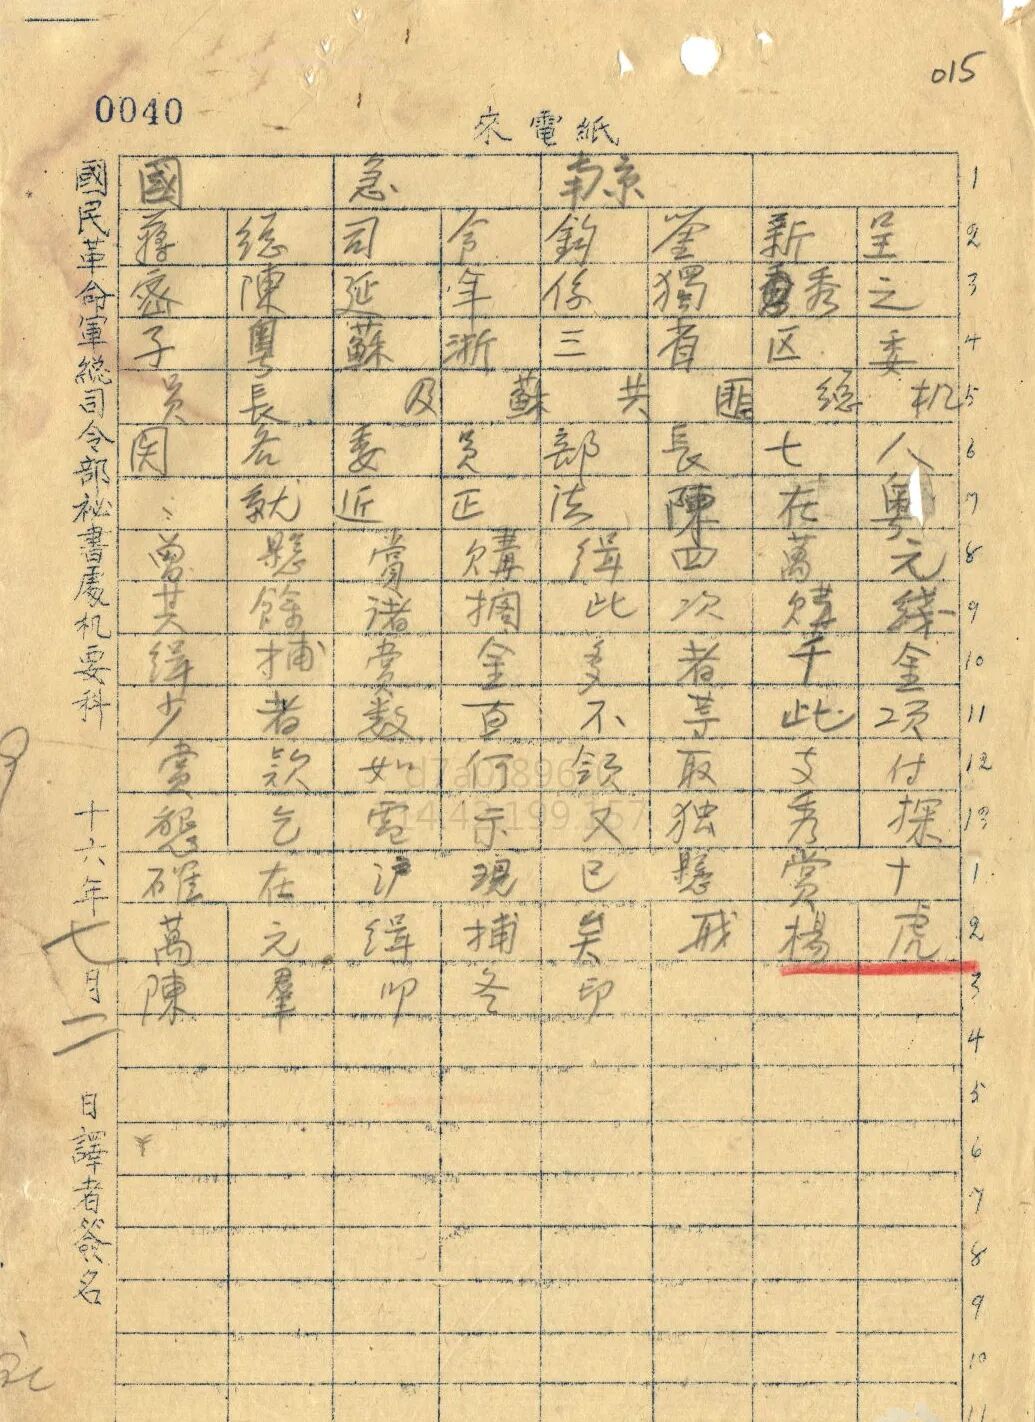 015
0040
來電紙
國 急 南京 1
蔣總司令鈞鑒新呈 2
密陳延年係獨秀之 3
子粵蘇浙三省区委 4
員長及蘇共匪總机 5
関各委員部長七人 6
就近正法陳在粵 7
曾懸賞購缉四萬元 8
其餘諸 此次購线 9
缉捕賞金多者千金 10
少者数百不等此项 11
賞款如何領取支付 12
懇乞電示又独秀探 13
確在沪現已懸賞十 1
萬元缉捕矣 楊虎 2
陳羣叩冬印 3
4
5
6
7
8
9
10
11
國民革命軍總司令部祕書處机要科 十六年七月二日譯者簽名